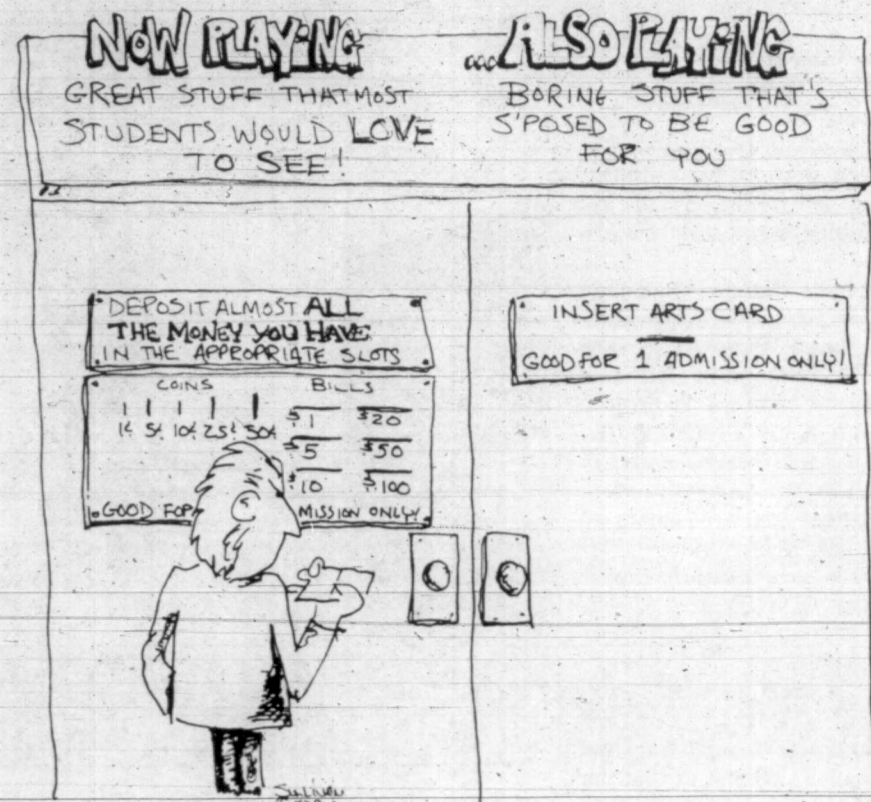 NOW PLAYING
GREAT STUFF THAT MOST
STUDENTS WOULD LOVE
TO SEE!
...ALSO PLAYING
BORING STUFF THAT'S
S'POSED TO BE GOOD
FOR YOU
DEPOSIT ALMOST ALL
THE MONEY YOU HAVE
IN THE APPROPRIATE SLOTS
COINS
1¢ 5¢ 10¢ 25¢ 50¢
BILLS
$1 $20
$5 $50
$10 $100
GOOD FOR MISSION ONLY!
INSERT ARTS CARD
GOOD FOR 1 ADMISSION ONLY!
SULLIVAN